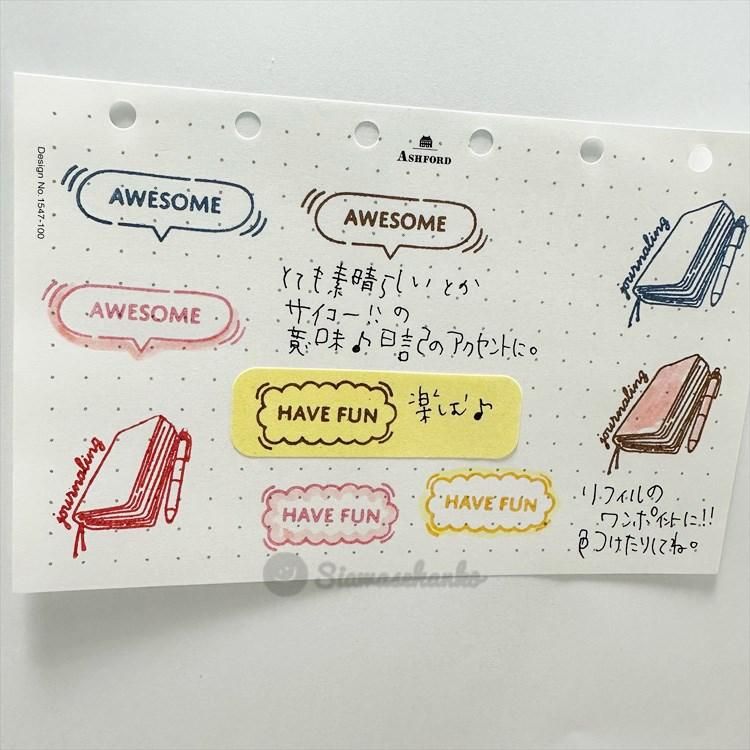 ASHFORD
Design No.1547-100
AWESOME
AWESOME
journaling
AWESOME
とても素晴らしいとか
サイコー!!の
意味♪日記のアクセントに。
HAVE FUN
楽しむ♪
journaling
journaling
HAVE FUN
HAVE FUN
リフィルの
ワンポイントに!!
つけたりしてね。
Siawasehanko